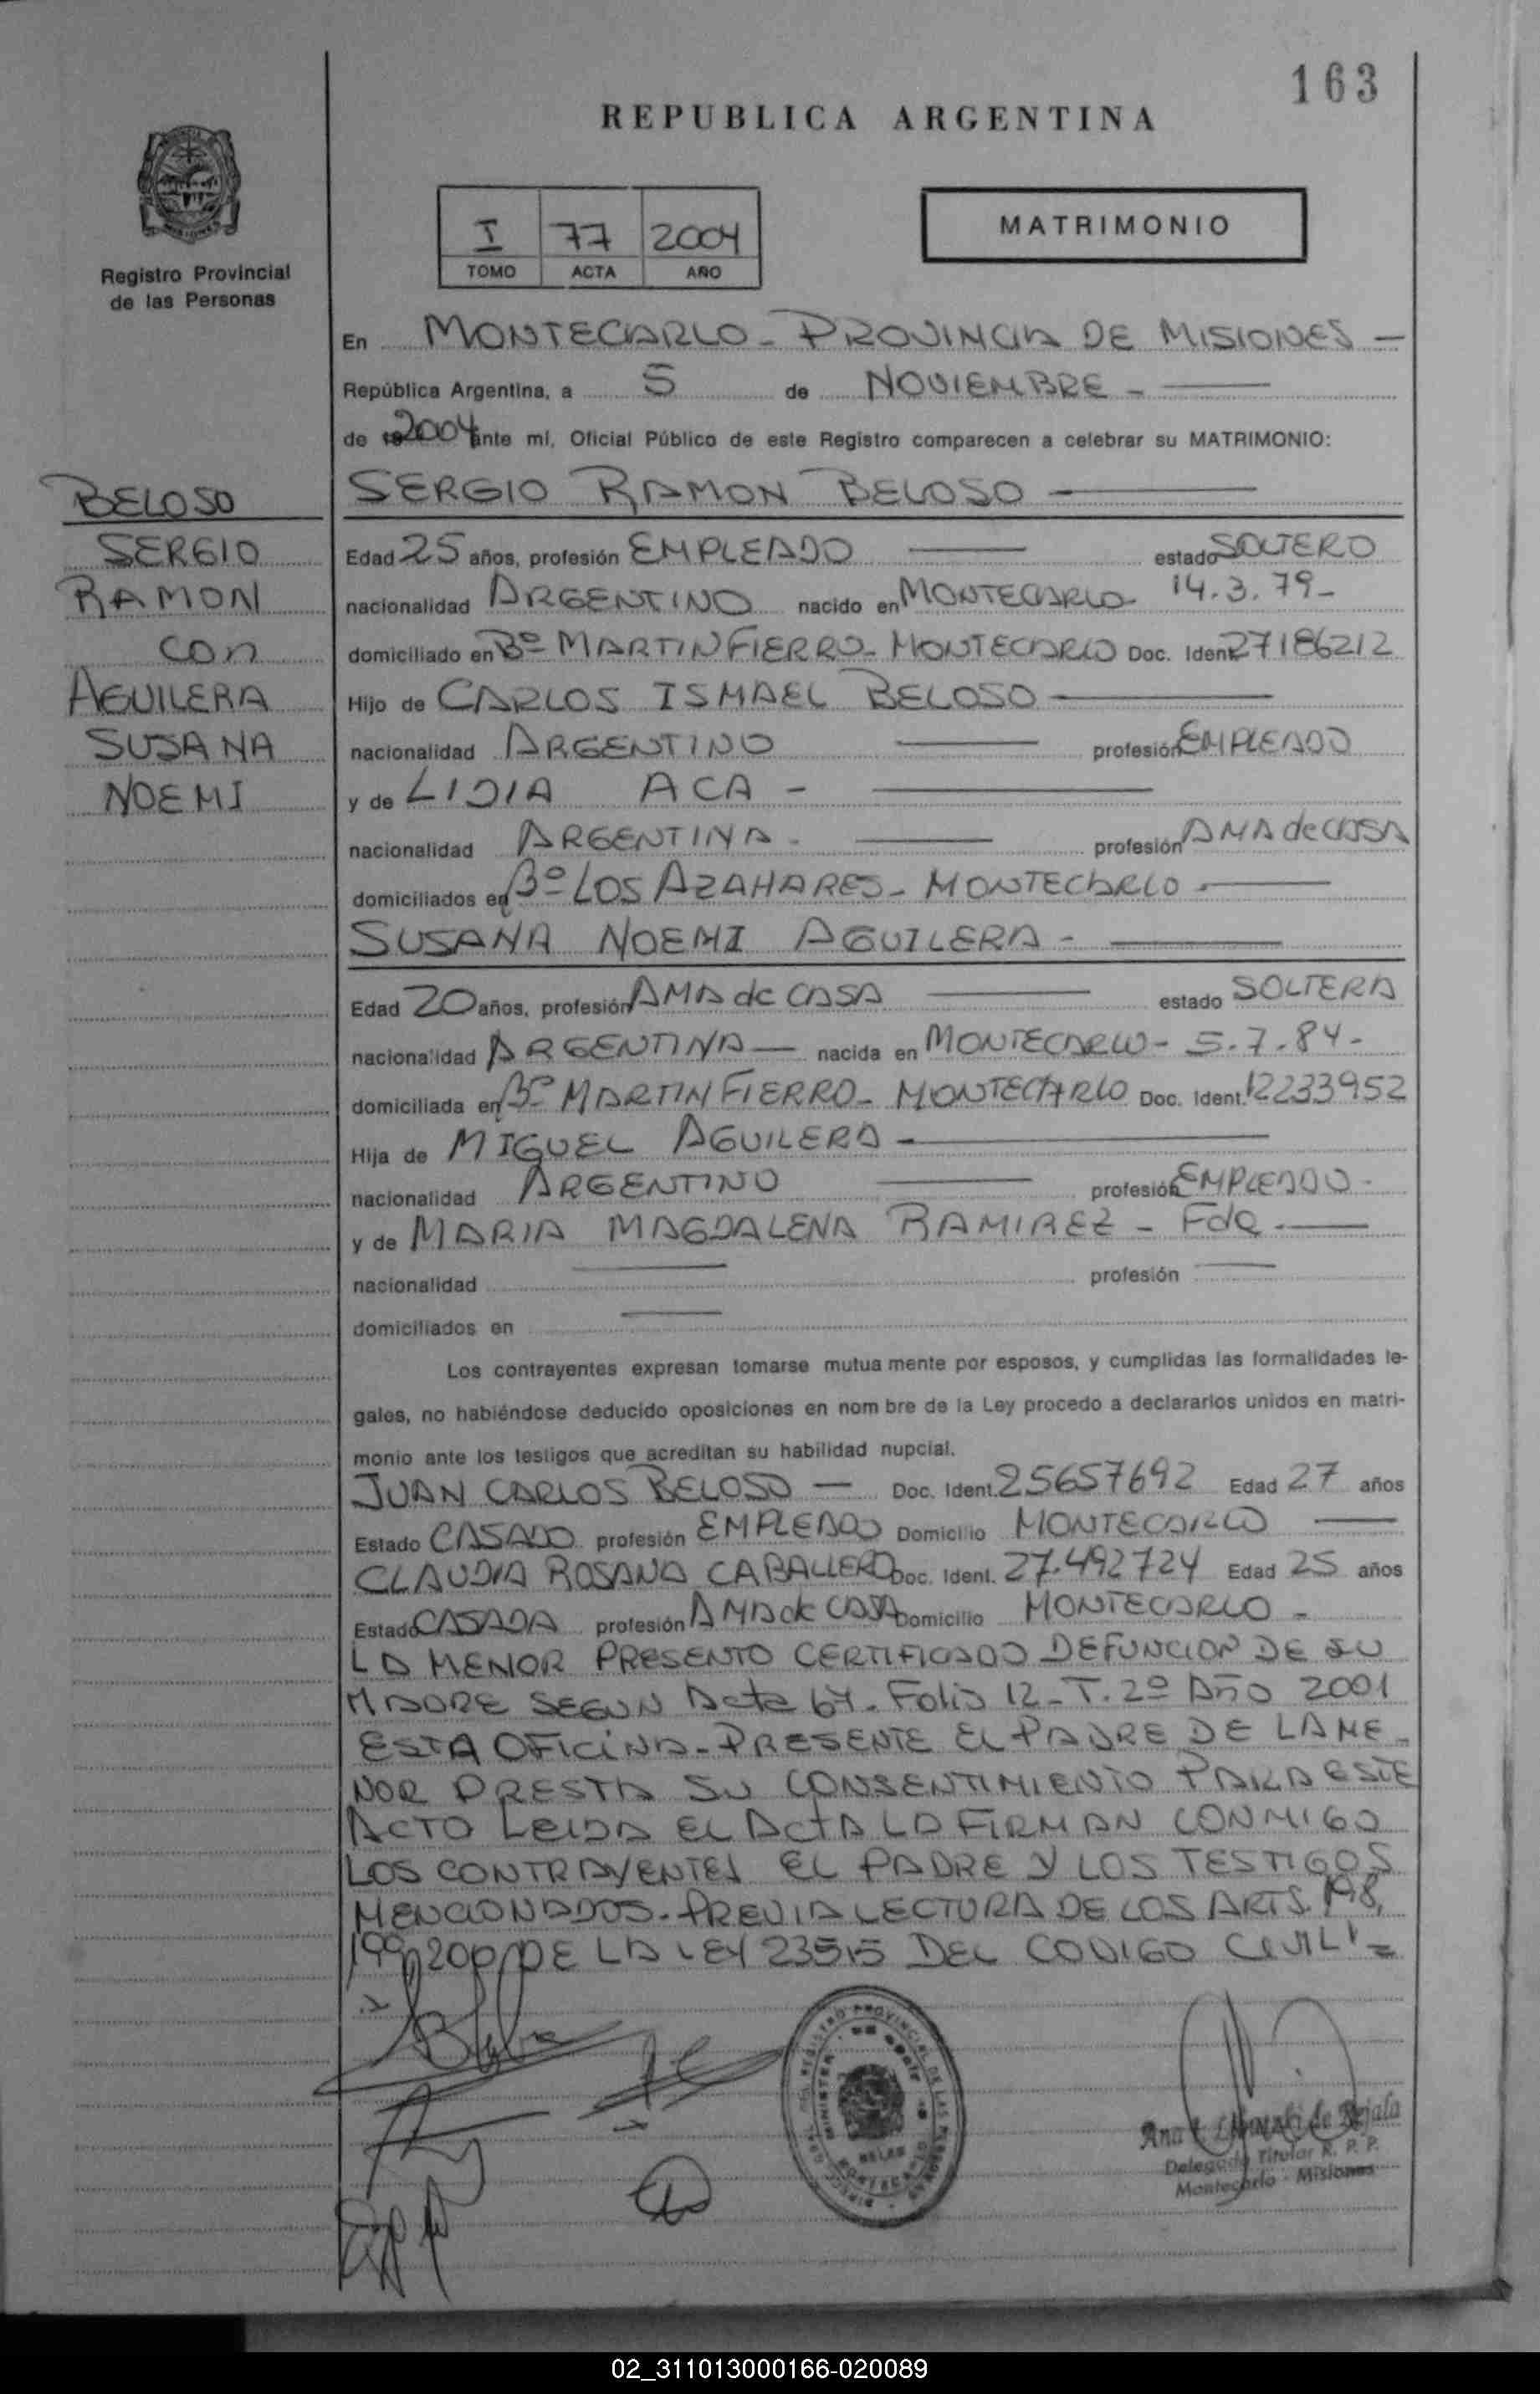 163
REPUBLICA ARGENTINA
I 77 2004
TOMO ACTA AÑO
MATRIMONIO
Registro Provincial
de las Personas
En MONTECARLO - PROVINCIA DE MISIONES -
República Argentina, a 5 de NOVIEMBRE -
de 2004 ante mí, Oficial Público de este Registro comparecen a celebrar su MATRIMONIO:
BELOSO
SERGIO
RAMON
con
AGUILERA
SUSANA
NOEMI
SERGIO RAMON BELOSO
Edad 25 años, profesión EMPLEADO estado SOLTERO
nacionalidad ARGENTINO nacido en MONTECARLO- 14.3.79-
domiciliado en Bº MARTIN FIERRO- MONTECARLO Doc. Ident. 27186212
Hijo de CARLOS ISMAEL BELOSO
nacionalidad ARGENTINO profesión EMPLEADO
y de LIDIA ACA -
nacionalidad ARGENTINA - profesión AMA de CASA
domiciliados en Bº LOS AZAHARES- MONTECARLO -
SUSANA NOEMI AGUILERA -
Edad 20 años, profesión AMA de CASA estado SOLTERA
nacionalidad ARGENTINA nacida en MONTECARLO- 5.7.84-
domiciliada en Bº MARTIN FIERRO- MONTECARLO Doc. Ident. 12233952
Hija de MIGUEL AGUILERA -
nacionalidad ARGENTINO profesión EMPLEADO -
y de MARIA MAGDALENA RAMIREZ - Fda -
nacionalidad profesión
domiciliados en
Los contrayentes expresan tomarse mutua mente por esposos, y cumplidas las formalidades le-
gales, no habiéndose deducido oposiciones en nom bre de la Ley procedo a declararlos unidos en matri-
monio ante los testigos que acreditan su habilidad nupcial.
JUAN CARLOS BELOSO - Doc. Ident. 25657692 Edad 27 años
Estado CASADO profesión EMPLEADO Domicilio MONTECARLO
CLAUDIA ROSANA CABALLERO Doc. Ident. 27.492724 Edad 25 años
Estado CASADA profesión AMA de CASA Domicilio MONTECARLO -
LA MENOR PRESENTO CERTIFICADO DEFUNCION DE SU
MADRE SEGUN Acta 64- Folio 12- T. 2º Año 2001
ESTA OFICINA- PRESENTE EL PADRE DE LA ME-
NOR PRESTA SU CONSENTIMIENTO PARA ESTE
ACTO LEIDA EL ACTA LA FIRMAN CONMIGO
LOS CONTRAYENTES EL PADRE Y LOS TESTIGOS
MENCIONADOS- PREVIA LECTURA DE LOS ARTS. 198,
199, 200, DE LA LEY 23515 DEL CODIGO CIVIL =
REGISTRO PROVINCIAL DE LAS PERSONAS
Ana de Bejala
Delegada Titular R. P. P.
Montecarlo - Misiones
02_311013000166-020089